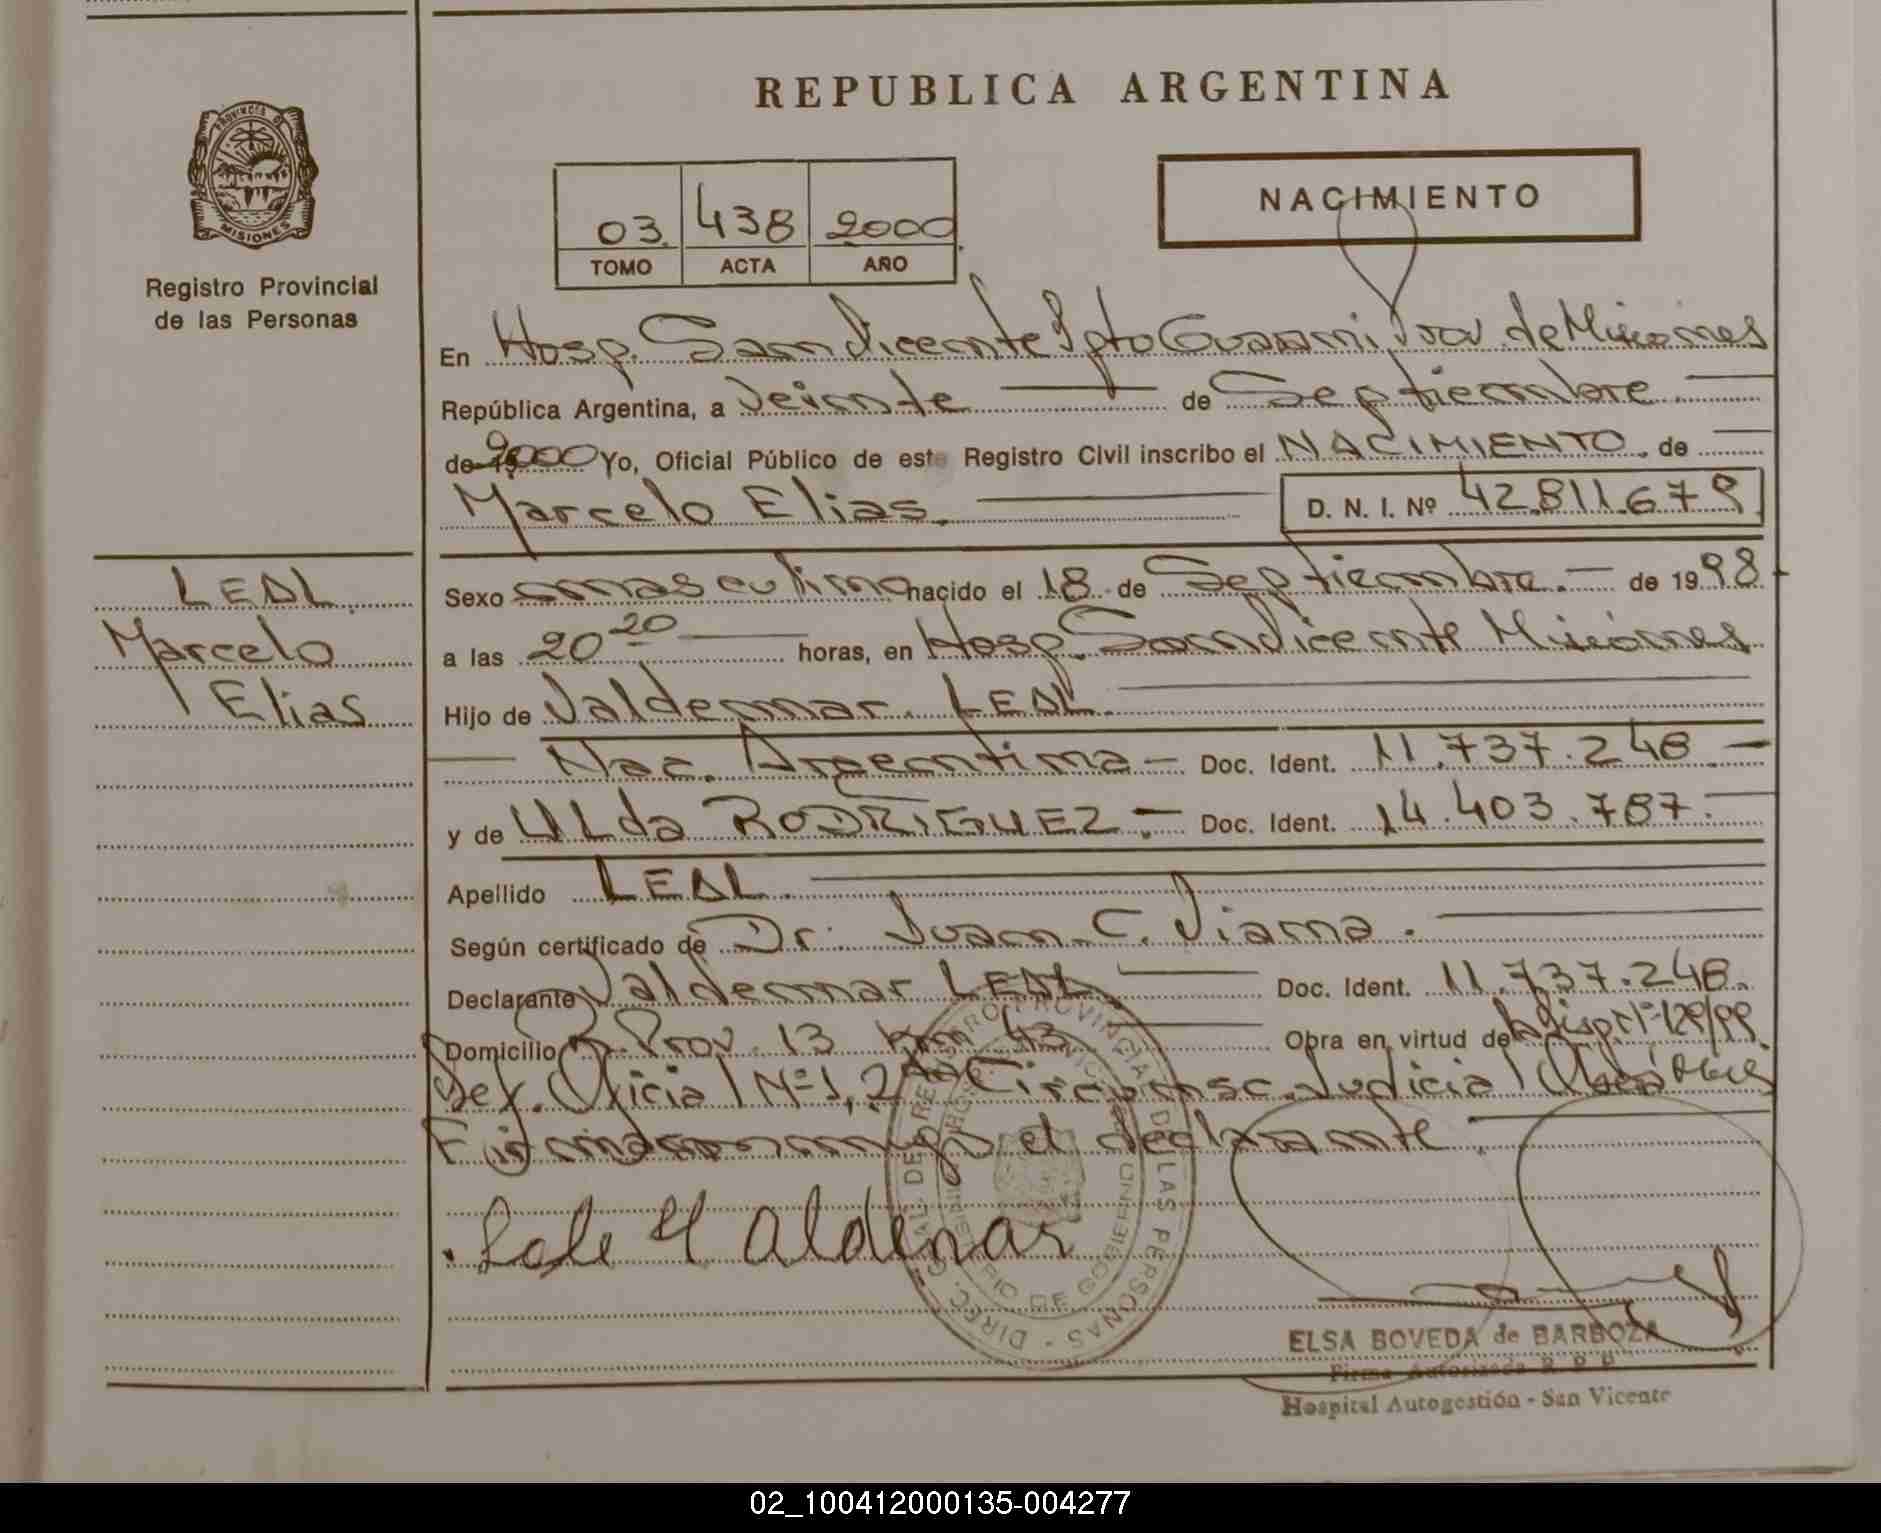 REPUBLICA ARGENTINA
PROVINCIA DE
MISIONES
Registro Provincial
de las Personas
03 438 2000
TOMO ACTA AÑO
NACIMIENTO
En Hosp. San Vicente Dpto Guaraní Prov. de Misiones
República Argentina, a Veinte de Septiembre
de 19 2000 Yo, Oficial Público de este Registro Civil inscribo el NACIMIENTO. de
Marcelo Elias. D. N. I. Nº 42.811.679
LEAL.
Marcelo
Elias
Sexo masculino nacido el 18 de Septiembre. de 1998
a las 20 20 horas, en Hosp. San Vicente Misiones
Hijo de Valdemar. LEAL.
Nac. Argentina - Doc. Ident. 11.737.248.-
y de ULda RODRIGUEZ.- Doc. Ident. 14.403.787.
Apellido LEAL.
Según certificado de Dr. Juan C. Viana.
Declarante Valdemar LEAL Doc. Ident. 11.737.248.
Domicilio R. Prov. 13 km 43 Obra en virtud de Disp. Nº 129/99
Def. Oficial Nº 1, 2da Circunsc. Judicial Oberá
Firmando el declarante
Valdemar
DIREC. GRAL. DE REGISTRO PROVINCIAL DE LAS PERSONAS
MINISTERIO DE GOBIERNO
ELSA BOVEDA de BARBOZA
Firma Autorizada R. P. P.
Hospital Autogestión - San Vicente
02_100412000135-004277